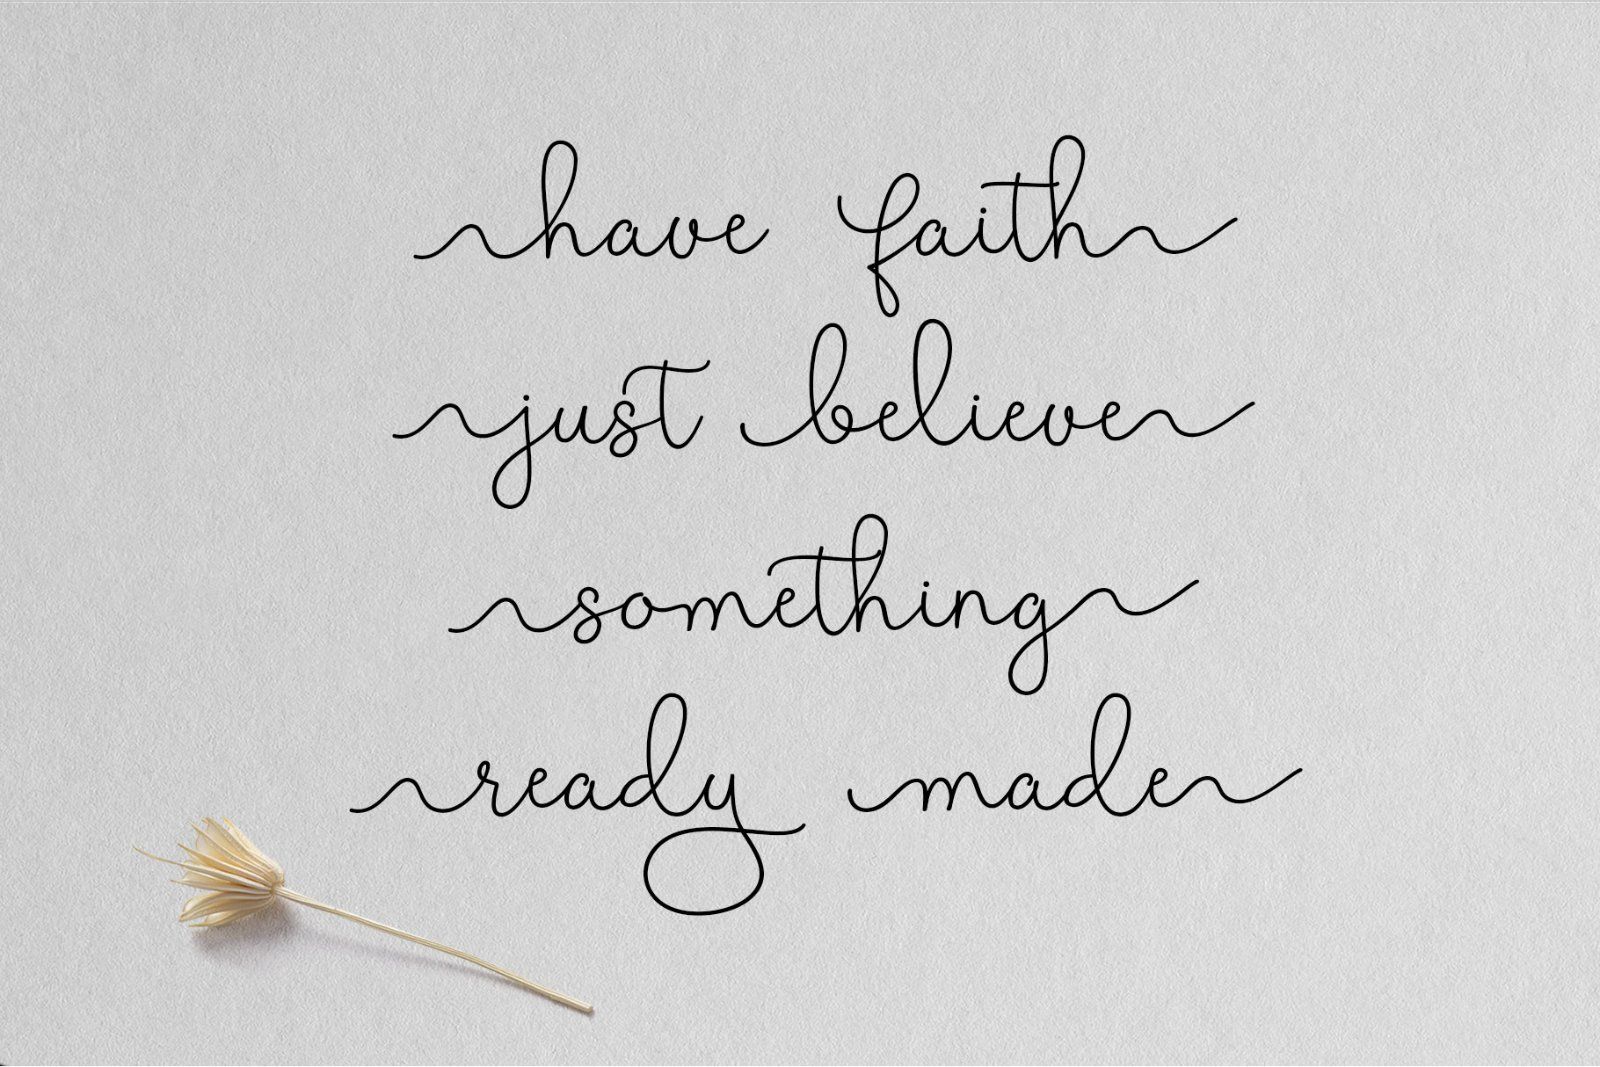 have faith
just believe
something
ready made